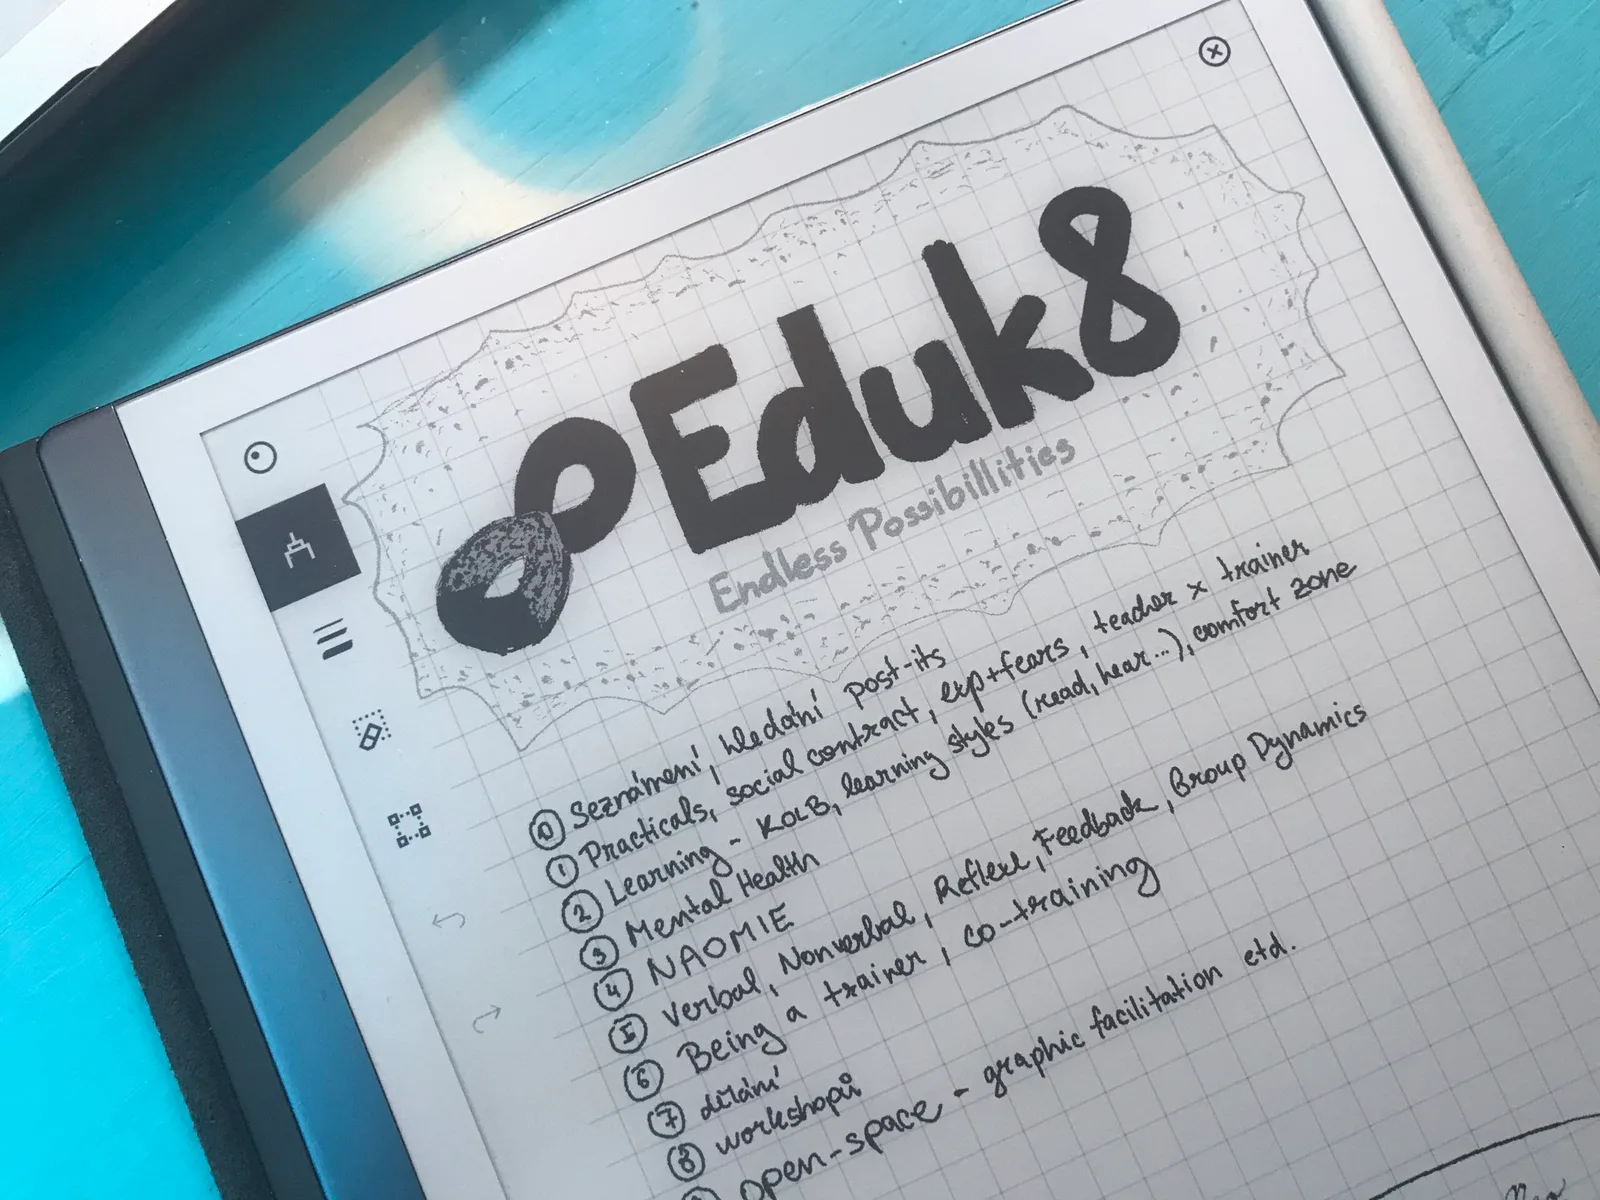 Eduk8
Endless Possibillities
0 Seznámení, hledání post-its
1 Practicals, social contract, exp+fears, teacher x trainer
2 Learning - KOLB, learning styles (read, hear...), comfort zone
3 Mental Health
4 NAOMIE
5 Verbal, Nonverbal, Reflexe, Feedback, Group Dynamics
6 Being a trainer, co-training
7 dělání
8 workshopů
open-space - graphic facilitation etd.